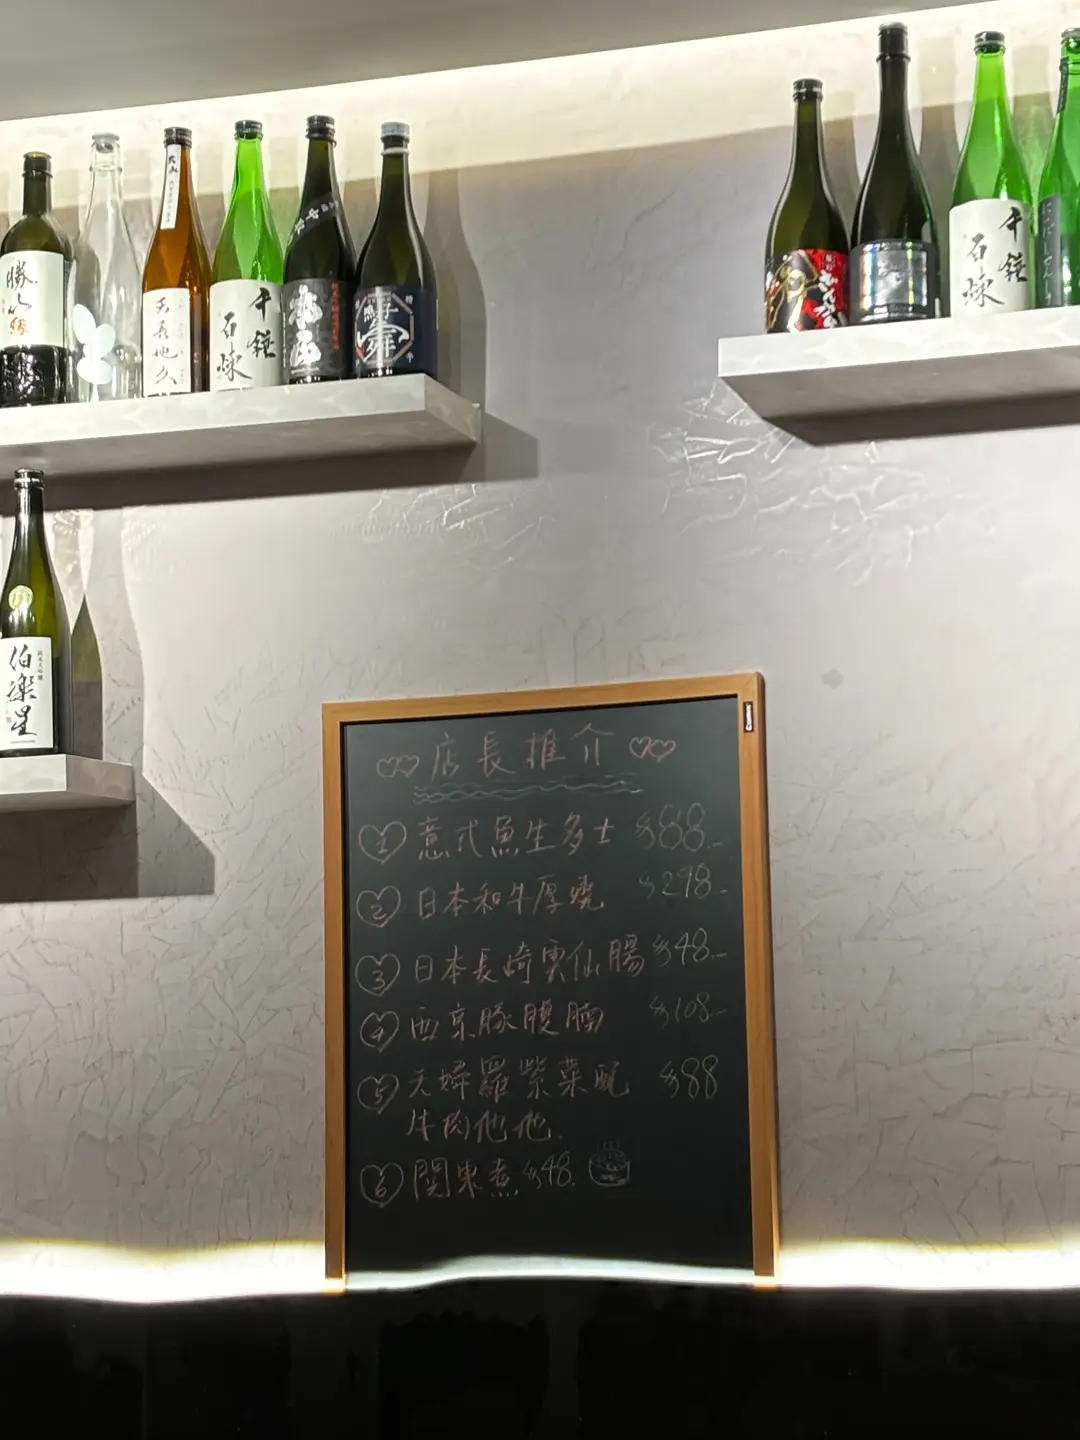 勝山
天長地久
千錘
石煉
醉舞
千錘
石煉
伯楽星
純米大吟醸
店長推介
1 意式魚生多士 $88.-
2 日本和牛厚燒 $298.-
3 日本長崎雲仙腸 $48.-
4 西京豚腰腩 $108.-
5 天婦羅紫菜配 $88
牛肉他他.
6 関東煮 $48.